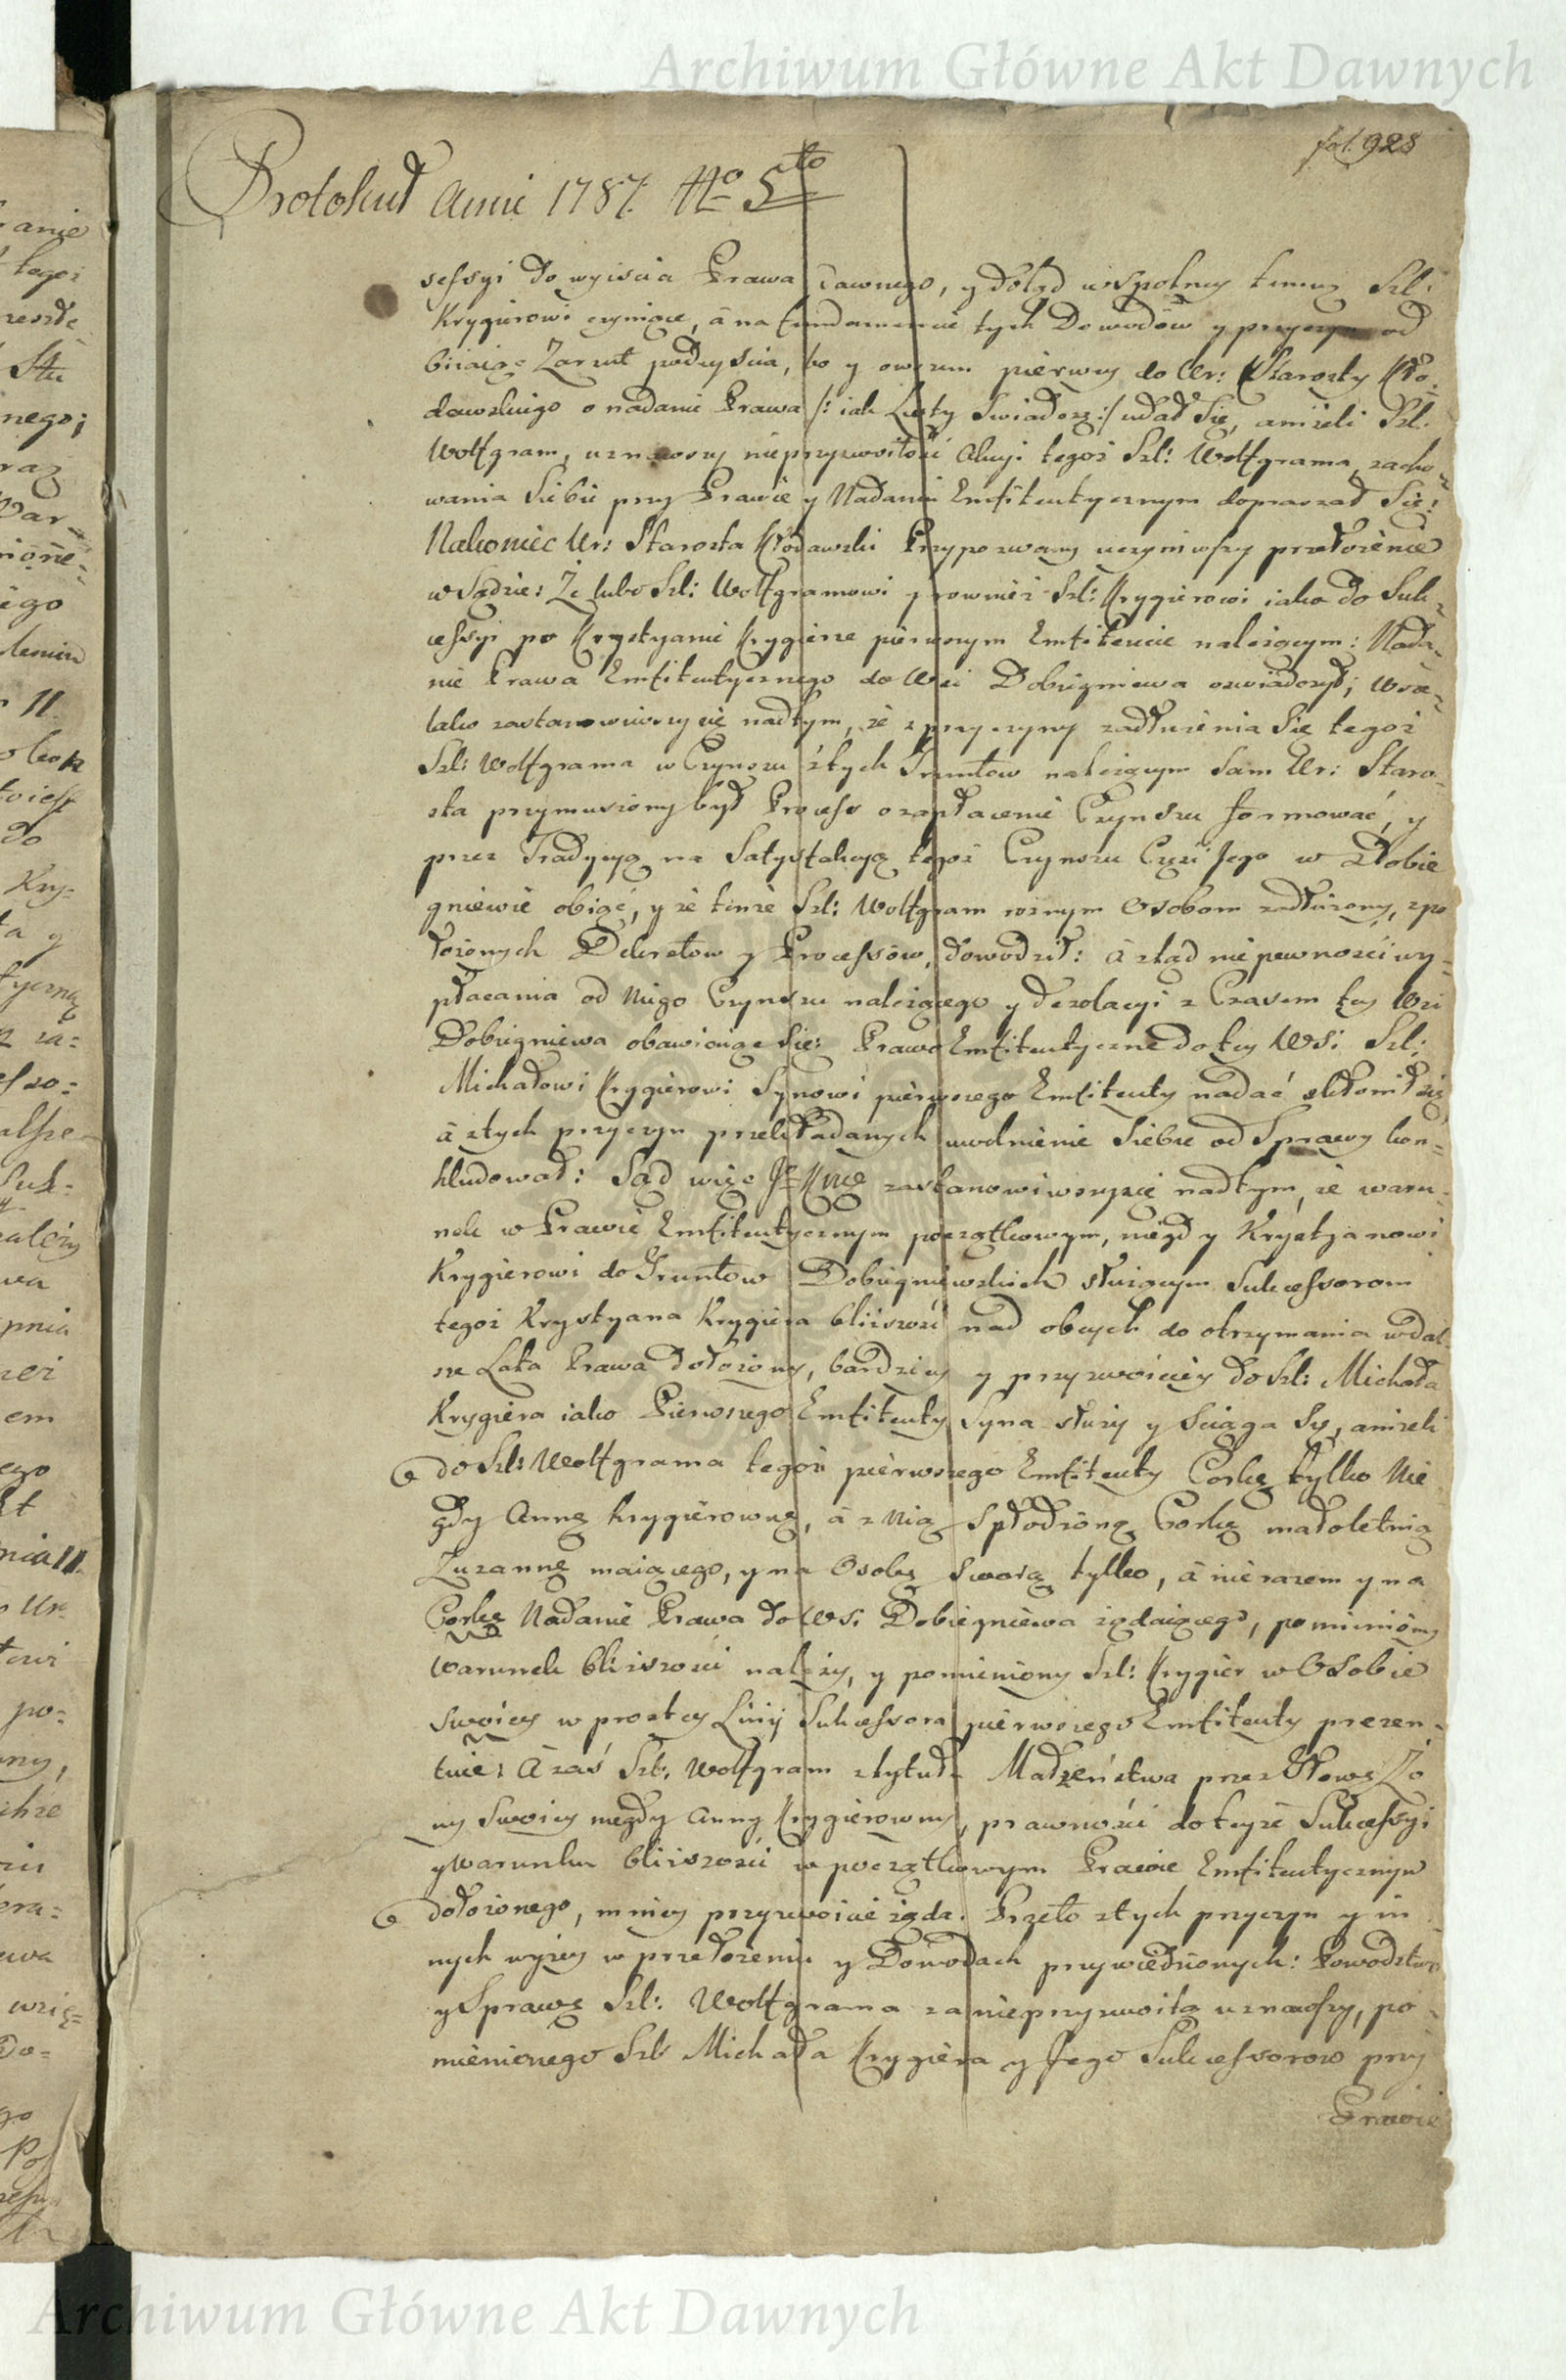 Archiwum Główne Akt Dawnych
fol. 928
Protokuł Anni 1787. No 5to
sessyi do wyiscia Prawa dawnego, y dotąd wspolney temuz Szl:
Krygierowi czyniące, à na fundamencie tych Dowodow y przyczyn od
biiaiąc Zarzut podeyscia, bo y owszem pierwey do Ur: Starosty Kło-
dawskiego o nadanie Prawa /: iak Listy swiadczą :/ udał się, aniżeli Szl:
Wolfgram, uznawszy nieprzyzwoitość Akcyi tegoż Szl: Wolfgrama, zacho-
wania Siebie przy Prawie y Nadaniu Emfiteutycznym dopraszał Się:
Nakoniec Ur: Starosta Kłodawski Przypozwany uczyniwszy przełożenie
w Sądzie: Że lubo Szl: Wolfgramowi y rownież Szl: Krygierowi iako do Suk-
cessyi po Krystyanie Krygierze pierwszym Emfiteucie należącym: Nada-
nie Prawa Emfiteutycznego do Wsi Dobiegniewa oswiadczył; wsze-
lako zastanowiwszy się nad tym, że z przyczyny zadłużenia Się tegoż
Szl: Wolfgrama w Czynszu z tych Gruntow należącym Sam Ur: Staro-
sta przymuszony był Process o zapłacenie Czynszu formować, y
przez Tradycyą na Satysfakcyą tegoż Czynszu Częsć Jego w Dobie
gniewie obiąć, y że tenże Szl: Wolfgram roznym Osobom zadłużony, zpo
łożonych Dekretow y Processow, dowodził: à ztąd niepewności wy-
płacania od Niego Czynszu należącego y dezolacyi z Czasem tey Wsi
Dobiegniewa obawiaiąc Się: Prawo Emfiteutyczne do tey Wsi Szl:
Michałowi Krygierowi Synowi pierwszego Emfiteuty nadać skłonił się
à z tych przyczyn przekładanych uwolnienie Siebie od Sprawy kon-
kludował: Sąd więc Jo Kncy zastanowiwszysię nad tym, że waru-
nek w Prawie Emfiteutycznym początkowym, niegdy Krystyanowi
Krygierowi do Gruntow Dobiegniewskich służącym Sukcessorom
tegoż Krystyana Krygiera bliższość nad obcych do otrzymania w dal-
sze Lata Prawa dołożony, bardziey y przyzwoiciey do Szl: Michała
Krygiera iako Pierwszego Emfiteuty Syna służy y sciąga Się, aniżeli
do Szl: Wolfgrama tegoż pierwszego Emfiteuty Corkę tylko Nie
gdy Annę Krygierownę, à z Nią Spłodzoną Corkę małoletnią
Zuzannę maiącego, y na Osobę Swoią tylko, à nie razem y na
Corkę Nadanie Prawa do Wsi Dobiegniewa żądaiącego, pomieniony
Warunek bliższosci należy, y pomieniony Szl: Krygier w Osobie
Swoiey w prostey Linij Sukcessora pierwszego Emfiteuty prezen-
tuie: à zaś Szl: Wolfgram z tytułu Małżeństwa przez Głowę Żo
ny Swoiey niegdy Anny Krygierowny, prawności do teyże Sukcessyi
y Warunku bliższosci w początkowym Prawie Emfiteutycznym
dołożonego, mniey przyzwoicie żąda. Przeto z tych przyczyn y in
nych wyżey w przełożeniu y Dowodach przywiedzionych: Powodztwo
y Sprawę Szl: Wolfgrama za nieprzyzwoitą uznawszy, po-
mienionego Szl: Michała Krygiera y Jego Sukcessorow przy
Prawie
Archiwum Główne Akt Dawnych